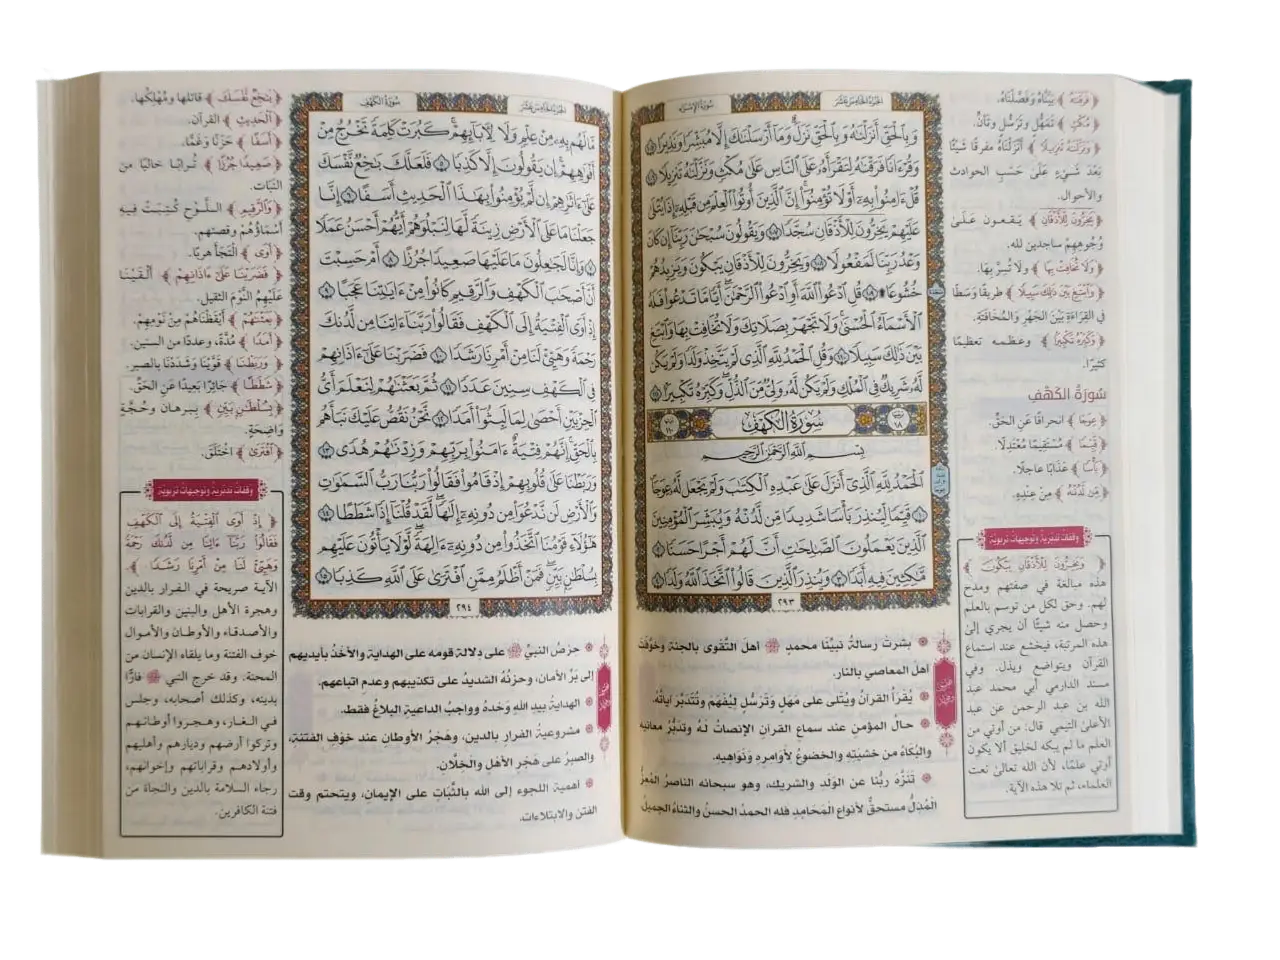 سورة الإسراء
الجزء الخامس عشر
وَبِالْحَقِّ أَنزَلْنَاهُ وَبِالْحَقِّ نَزَلَ وَمَا أَرْسَلْنَاكَ إِلَّا مُبَشِّرًا وَنَذِيرًا ١٠٥
وَقُرْءَانًا فَرَقْنَاهُ لِتَقْرَأَهُ عَلَى النَّاسِ عَلَى مُكْثٍ وَنَزَّلْنَاهُ تَنزِيلًا ١٠٦
قُلْ ءَامِنُوا بِهِ أَوْ لَا تُؤْمِنُوا إِنَّ الَّذِينَ أُوتُوا الْعِلْمَ مِن قَبْلِهِ إِذَا يُتْلَى
عَلَيْهِمْ يَخِرُّونَ لِلْأَذْقَانِ سُجَّدًا ١٠٧ وَيَقُولُونَ سُبْحَانَ رَبِّنَا إِن كَانَ
وَعْدُ رَبِّنَا لَمَفْعُولًا ١٠٨ وَيَخِرُّونَ لِلْأَذْقَانِ يَبْكُونَ وَيَزِيدُهُمْ
خُشُوعًا ١٠٩ قُلِ ادْعُوا اللَّهَ أَوِ ادْعُوا الرَّحْمَنَ أَيًّا مَّا تَدْعُوا فَلَهُ
الْأَسْمَاءُ الْحُسْنَى وَلَا تَجْهَرْ بِصَلَاتِكَ وَلَا تُخَافِتْ بِهَا وَابْتَغِ
بَيْنَ ذَلِكَ سَبِيلًا ١١٠ وَقُلِ الْحَمْدُ لِلَّهِ الَّذِي لَمْ يَتَّخِذْ وَلَدًا وَلَمْ يَكُن
لَّهُ شَرِيكٌ فِي الْمُلْكِ وَلَمْ يَكُن لَّهُ وَلِيٌّ مِّنَ الذُّلِّ وَكَبِّرْهُ تَكْبِيرًا ١١١
سُورَةُ الْكَهْفِ
بِسْمِ اللَّهِ الرَّحْمَنِ الرَّحِيمِ
الْحَمْدُ لِلَّهِ الَّذِي أَنزَلَ عَلَى عَبْدِهِ الْكِتَابَ وَلَمْ يَجْعَل لَّهُ عِوَجًا
١ قَيِّمًا لِّيُنذِرَ بَأْسًا شَدِيدًا مِّن لَّدُنْهُ وَيُبَشِّرَ الْمُؤْمِنِينَ
الَّذِينَ يَعْمَلُونَ الصَّالِحَاتِ أَنَّ لَهُمْ أَجْرًا حَسَنًا ٢
مَّاكِثِينَ فِيهِ أَبَدًا ٣ وَيُنذِرَ الَّذِينَ قَالُوا اتَّخَذَ اللَّهُ وَلَدًا ٤
٢٩٣
﴿ فَرَقْنَاهُ ﴾ بَيَّنَّاهُ وَفَصَّلْنَاهُ.
﴿ مُكْثٍ ﴾ تَمَهُّلٍ وتَرَسُّلٍ وتَأَنٍّ.
﴿ وَنَزَّلْنَاهُ تَنزِيلًا ﴾ أَنْزَلْنَاهُ مفرقًا شَيْئًا
بَعْدَ شَيْءٍ عَلَى حَسَبِ الحوادث
والأحوال.
﴿ يَخِرُّونَ لِلْأَذْقَانِ ﴾ يَقَعون عَلَى
وُجُوهِهِمْ ساجدين لله.
﴿ وَلَا تُخَافِتْ بِهَا ﴾ ولا تُسِرَّ بِهَا.
﴿ وَابْتَغِ بَيْنَ ذَلِكَ سَبِيلًا ﴾ طريقًا وَسَطًا
في القِرَاءَةِ بَيْنَ الجَهْرِ والمُخَافَتَةِ.
﴿ وَكَبِّرْهُ تَكْبِيرًا ﴾ وعظمه تعظيمًا
كثيرًا.
سُورَةُ الكَهْفِ
﴿ عِوَجًا ﴾ انحرافًا عَنِ الحَقِّ.
﴿ قَيِّمًا ﴾ مُسْتَقِيمًا مُعْتَدِلًا.
﴿ بَأْسًا ﴾ عَذَابًا عاجِلًا.
﴿ مِّن لَّدُنْهُ ﴾ مِنْ عِنْدِهِ.
وقفات تدبرية وتوجيهات تربوية
﴿ وَيَخِرُّونَ لِلْأَذْقَانِ يَبْكُونَ ﴾
هذه مبالغة في صفتهم ومدح
لهم. وحق لكل من توسم بالعلم
وحصل منه شيئًا أن يجري إلى
هذه المرتبة، فيخشع عند استماع
القرآن ويتواضع ويذل. وفي
مسند الدارمي أبي محمد عبد
الله بن عبد الرحمن عن عبد
الأعلى التيمي قال: من أوتي من
العلم ما لم يبكه لخليق ألا يكون
أوتي علمًا، لأن الله تعالى نعت
العلماء، ثم تلا هذه الآية.
بشرت رسالةُ نبيِّنا محمدٍ ﷺ أهلَ التَّقوى بالجنة وخوَّفَت
أهلَ المعاصي بالنار.
يُقرَأُ القرآنُ ويُتْلى على مَهَلٍ وتَرَسُّلٍ ليُفهَمَ وتُتَدَبَّرَ آياتُهُ.
حالُ المؤمنِ عند سماعِ القرآنِ الإنصاتُ لهُ وتدبُّرُ معانيه
والبُكاءُ من خشيَتِهِ والخضوعُ لأوامرِهِ ونَوَاهِيهِ.
تَنَزَّهَ ربُّنا عن الوَلَدِ والشريك، وهو سبحانه الناصرُ المُعِزُّ
المُذِلُّ مستحقٌّ لأنواع المَحَامِدِ فله الحمدُ الحسنُ والثناءُ الجميلُ
الجزء الخامس عشر
سورة الكهف
مَّا لَهُم بِهِ مِنْ عِلْمٍ وَلَا لِآبَائِهِمْ كَبُرَتْ كَلِمَةً تَخْرُجُ مِنْ
أَفْوَاهِهِمْ إِن يَقُولُونَ إِلَّا كَذِبًا ٥ فَلَعَلَّكَ بَاخِعٌ نَّفْسَكَ
عَلَى ءَاثَارِهِمْ إِن لَّمْ يُؤْمِنُوا بِهَذَا الْحَدِيثِ أَسَفًا ٦ إِنَّا
جَعَلْنَا مَا عَلَى الْأَرْضِ زِينَةً لَّهَا لِنَبْلُوَهُمْ أَيُّهُمْ أَحْسَنُ عَمَلًا
٧ وَإِنَّا لَجَاعِلُونَ مَا عَلَيْهَا صَعِيدًا جُرُزًا ٨ أَمْ حَسِبْتَ
أَنَّ أَصْحَابَ الْكَهْفِ وَالرَّقِيمِ كَانُوا مِنْ ءَايَاتِنَا عَجَبًا ٩
إِذْ أَوَى الْفِتْيَةُ إِلَى الْكَهْفِ فَقَالُوا رَبَّنَا ءَاتِنَا مِن لَّدُنكَ
رَحْمَةً وَهَيِّئْ لَنَا مِنْ أَمْرِنَا رَشَدًا ١٠ فَضَرَبْنَا عَلَى ءَاذَانِهِمْ
فِي الْكَهْفِ سِنِينَ عَدَدًا ١١ ثُمَّ بَعَثْنَاهُمْ لِنَعْلَمَ أَيُّ
الْحِزْبَيْنِ أَحْصَى لِمَا لَبِثُوا أَمَدًا ١٢ نَّحْنُ نَقُصُّ عَلَيْكَ نَبَأَهُم
بِالْحَقِّ إِنَّهُمْ فِتْيَةٌ ءَامَنُوا بِرَبِّهِمْ وَزِدْنَاهُمْ هُدًى ١٣
وَرَبَطْنَا عَلَى قُلُوبِهِمْ إِذْ قَامُوا فَقَالُوا رَبُّنَا رَبُّ السَّمَاوَاتِ
وَالْأَرْضِ لَن نَّدْعُوَا مِن دُونِهِ إِلَهًا لَّقَدْ قُلْنَا إِذًا شَطَطًا ١٤
هَؤُلَاءِ قَوْمُنَا اتَّخَذُوا مِن دُونِهِ ءَالِهَةً لَّوْلَا يَأْتُونَ عَلَيْهِم
بِسُلْطَانٍ بَيِّنٍ فَمَنْ أَظْلَمُ مِمَّنِ افْتَرَى عَلَى اللَّهِ كَذِبًا ١٥
٢٩٤
﴿ بَاخِعٌ نَّفْسَكَ ﴾ قاتلها ومُهْلِكُها.
﴿ الْحَدِيثِ ﴾ القرآن.
﴿ أَسَفًا ﴾ حُزْنًا وغَمًّا.
﴿ صَعِيدًا جُرُزًا ﴾ تُرابًا خاليًا من
النبات.
﴿ وَالرَّقِيمِ ﴾ اللَّوْحِ كُتِبَتْ فِيهِ
أَسْمَاؤُهُمْ وقصتهم.
﴿ أَوَى ﴾ الْتَجَأَ هربًا.
﴿ فَضَرَبْنَا عَلَى ءَاذَانِهِمْ ﴾ أَلْقَيْنَا
عَلَيْهِمُ النَّوْمَ الثقيل.
﴿ بَعَثْنَاهُمْ ﴾ أَيْقَظْنَاهُمْ مِنْ نَوْمِهِمْ.
﴿ أَمَدًا ﴾ مُدَّةً، وعددًا من السنين.
﴿ وَرَبَطْنَا ﴾ قَوَّيْنَا وشَدَدْنَا بالصبر.
﴿ شَطَطًا ﴾ جَائِرًا بَعِيدًا عَنِ الحَقِّ.
﴿ بِسُلْطَانٍ بَيِّنٍ ﴾ بِبُرهانٍ وحُجَّةٍ
وَاضِحَةٍ.
﴿ افْتَرَى ﴾ اخْتَلَقَ.
وقفات تدبرية وتوجيهات تربوية
﴿ إِذْ أَوَى الْفِتْيَةُ إِلَى الْكَهْفِ
فَقَالُوا رَبَّنَا ءَاتِنَا مِن لَّدُنكَ رَحْمَةً
وَهَيِّئْ لَنَا مِنْ أَمْرِنَا رَشَدًا ﴾.
الآية صريحة في الفرار بالدين
وهجرة الأهل والبنين والقرابات
والأصدقاء والأوطان والأموال
خوف الفتنة وما يلقاه الإنسان من
المحنة. وقد خرج النبي ﷺ فارًّا
بدينه، وكذلك أصحابه، وجلس
في الغار، وهجروا أوطانهم
وتركوا أرضهم وديارهم وأهليهم
وأولادهم وقراباتهم وإخوانهم،
رجاء السلامة بالدين والنجاة من
فتنة الكافرين.
حرْصُ النبيِّ ﷺ على دِلالة قومه على الهداية والأخذُ بأيديهم
إلى بَرِّ الأمان، وحزنُهُ الشديدُ على تكذيبهم وعدم اتباعهم.
الهدايةُ بيدِ اللهِ وَحْدَهُ وواجبُ الداعيةِ البلاغُ فقط.
مشروعيةُ الفرارِ بالدين، وهَجْرُ الأوطانِ عند خوْفِ الفتنة،
والصبرُ على هَجْرِ الأهلِ والخِلَّان.
أهميةُ اللجوءِ إلى اللهِ بالثَّباتِ على الإيمان، ويتحتم وقت
الفتن والابتلاءات.